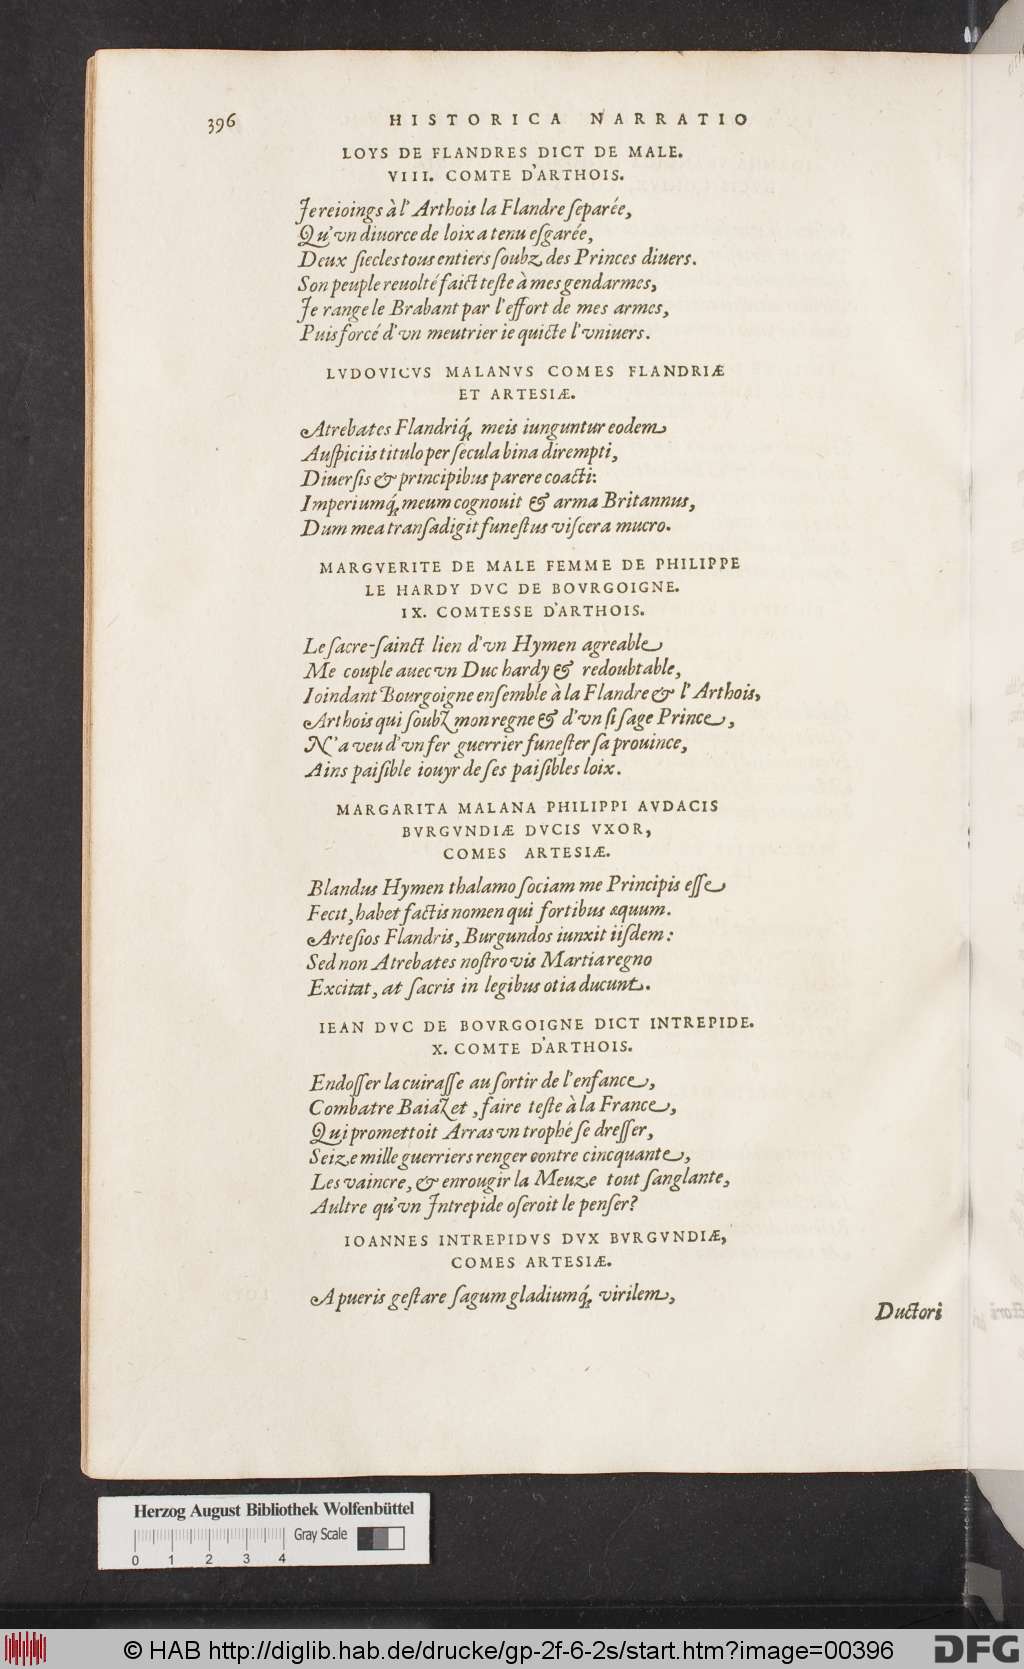 396 HISTORICA NARRATIO
LOYS DE FLANDRES DICT DE MALE.
VIII. COMTE D'ARTHOIS.
Je reioings à l'Arthois la Flandre ſeparée,
Qu'vn diuorce de loix a tenu eſgarée,
Deux ſiecles tous entiers ſoubz des Princes diuers.
Son peuple reuolté faict teſte à mes gendarmes,
Je range le Brabant par l'effort de mes armes,
Puis forcé d'vn meutrier ie quicte l'vniuers.
LVDOVICVS MALANVS COMES FLANDRIÆ
ET ARTESIÆ.
Atrebates Flandriq́; meis iunguntur eodem
Auſpiciis titulo per ſecula bina dirempti,
Diuerſis & principibus parere coacti:
Imperiumq́; meum cognouit & arma Britannus,
Dum mea tranſadigit funeſtus viſcera mucro.
MARGVERITE DE MALE FEMME DE PHILIPPE
LE HARDY DVC DE BOVRGOIGNE.
IX. COMTESSE D'ARTHOIS.
Le ſacre-ſainct lien d'vn Hymen agreable
Me couple auec vn Duc hardy & redoubtable,
Ioindant Bourgoigne enſemble à la Flandre & l'Arthois,
Arthois qui ſoubz mon regne & d'vn ſi ſage Prince,
N'a veu d'vn fer guerrier funeſter ſa prouince,
Ains paiſible iouyr de ſes paiſibles loix.
MARGARITA MALANA PHILIPPI AVDACIS
BVRGVNDIÆ DVCIS VXOR,
COMES ARTESIÆ.
Blandus Hymen thalamo ſociam me Principis eſſe
Fecit, habet factis nomen qui fortibus æquum.
Arteſios Flandris, Burgundos iunxit iiſdem:
Sed non Atrebates noſtro vis Martia regno
Excitat, at ſacris in legibus otia ducunt.
IEAN DVC DE BOVRGOIGNE DICT INTREPIDE.
X. COMTE D'ARTHOIS.
Endoſſer la cuiraſſe au ſortir de l'enfance,
Combatre Baiazet, faire teſte à la France,
Qui promettoit Arras vn trophé ſe dreſſer,
Seize mille guerriers renger contre cincquante,
Les vaincre, & enrougir la Meuze tout ſanglante,
Aultre qu'vn Jntrepide oſeroit le penſer?
IOANNES INTREPIDVS DVX BVRGVNDIÆ,
COMES ARTESIÆ.
A pueris geſtare ſagum gladiumq́; virilem,
Ductori
Herzog August Bibliothek Wolfenbüttel
Gray Scale
0 1 2 3 4
© HAB http://diglib.hab.de/drucke/gp-2f-6-2s/start.htm?image=00396
DFG